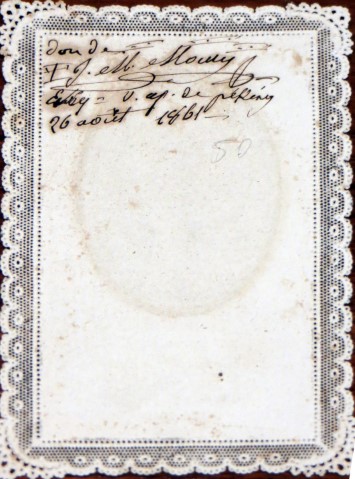 don de
† J. M. Mouly
Evêq. v. ap. de péking
26 août 1861
50